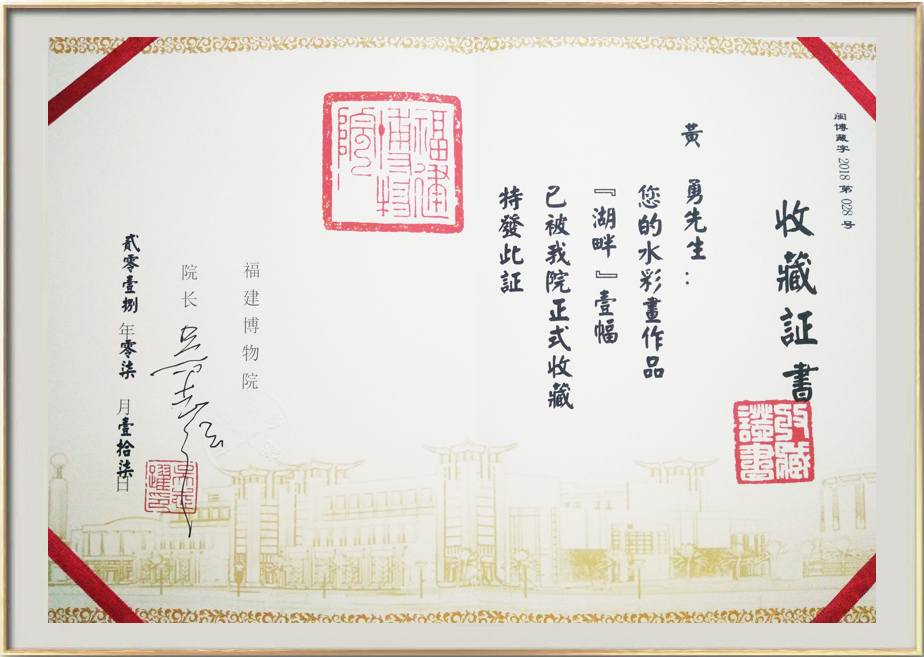 闽博藏字2018第028号
收藏証書
收藏
證書
黃勇先生：
您的水彩畫作品
『湖畔』壹幅
已被我院正式收藏
特發此証
福建
博物
院
福建博物院
院长
貳零壹捌年零柒月壹拾柒日